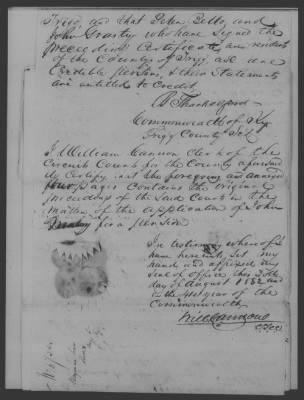 Trigg and that John Potts, and
John Grasty who have signed the
preceeding Certificate, are residents
of the County of Trigg & are
Credible persons, & their Statements
are entitled to Credit,
Commonwealth of Ky
Trigg County Sct.
I William Cannon clerk of the
Circuit Court for the County aforesaid
do Certify that the foregoing an annexed
four pages Contains the original
proceedings of the said Court in the
matter of the application of John
for a pension
In testimony whereof I
have hereunto set my
hand and affixed the
seal of office this
day of August 1832 and
in the 41st year of the
Commonwealth
Will Cannon